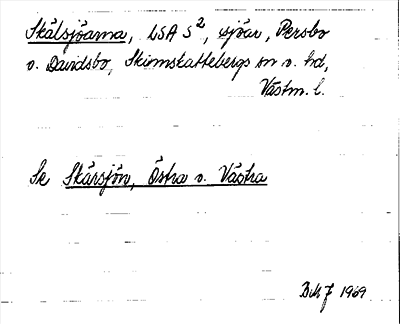 Skälsjöarna, LSA S², sjöar, Persbo
o. Davidsbo, Skinnskattebergs sn o. hd,
Västm. l.
Se Skärsjön, Östra o. Västra
1969